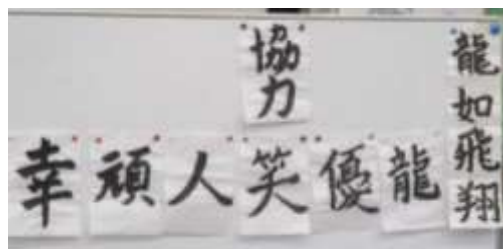 協力
龍如飛翔
幸
頑
人
笑
優
龍